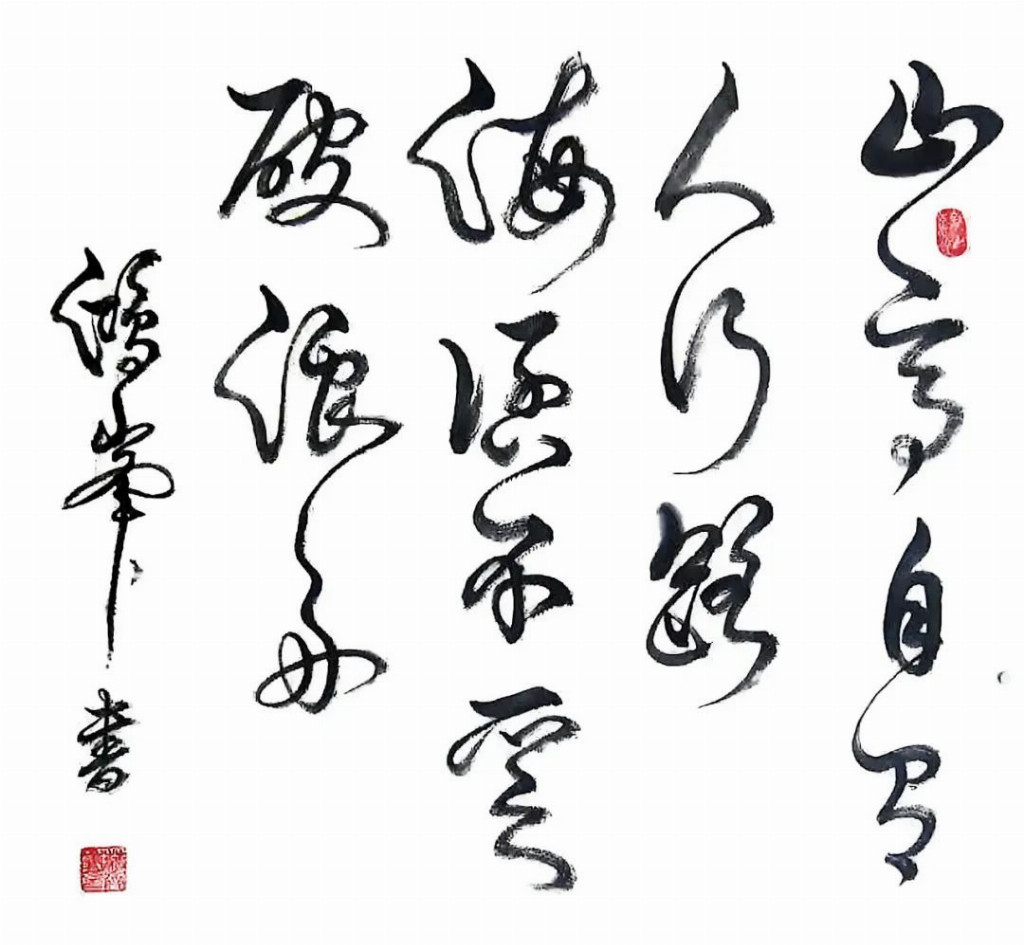 山高自有
人行路
海深不乏
破浪舟
鴻峯書